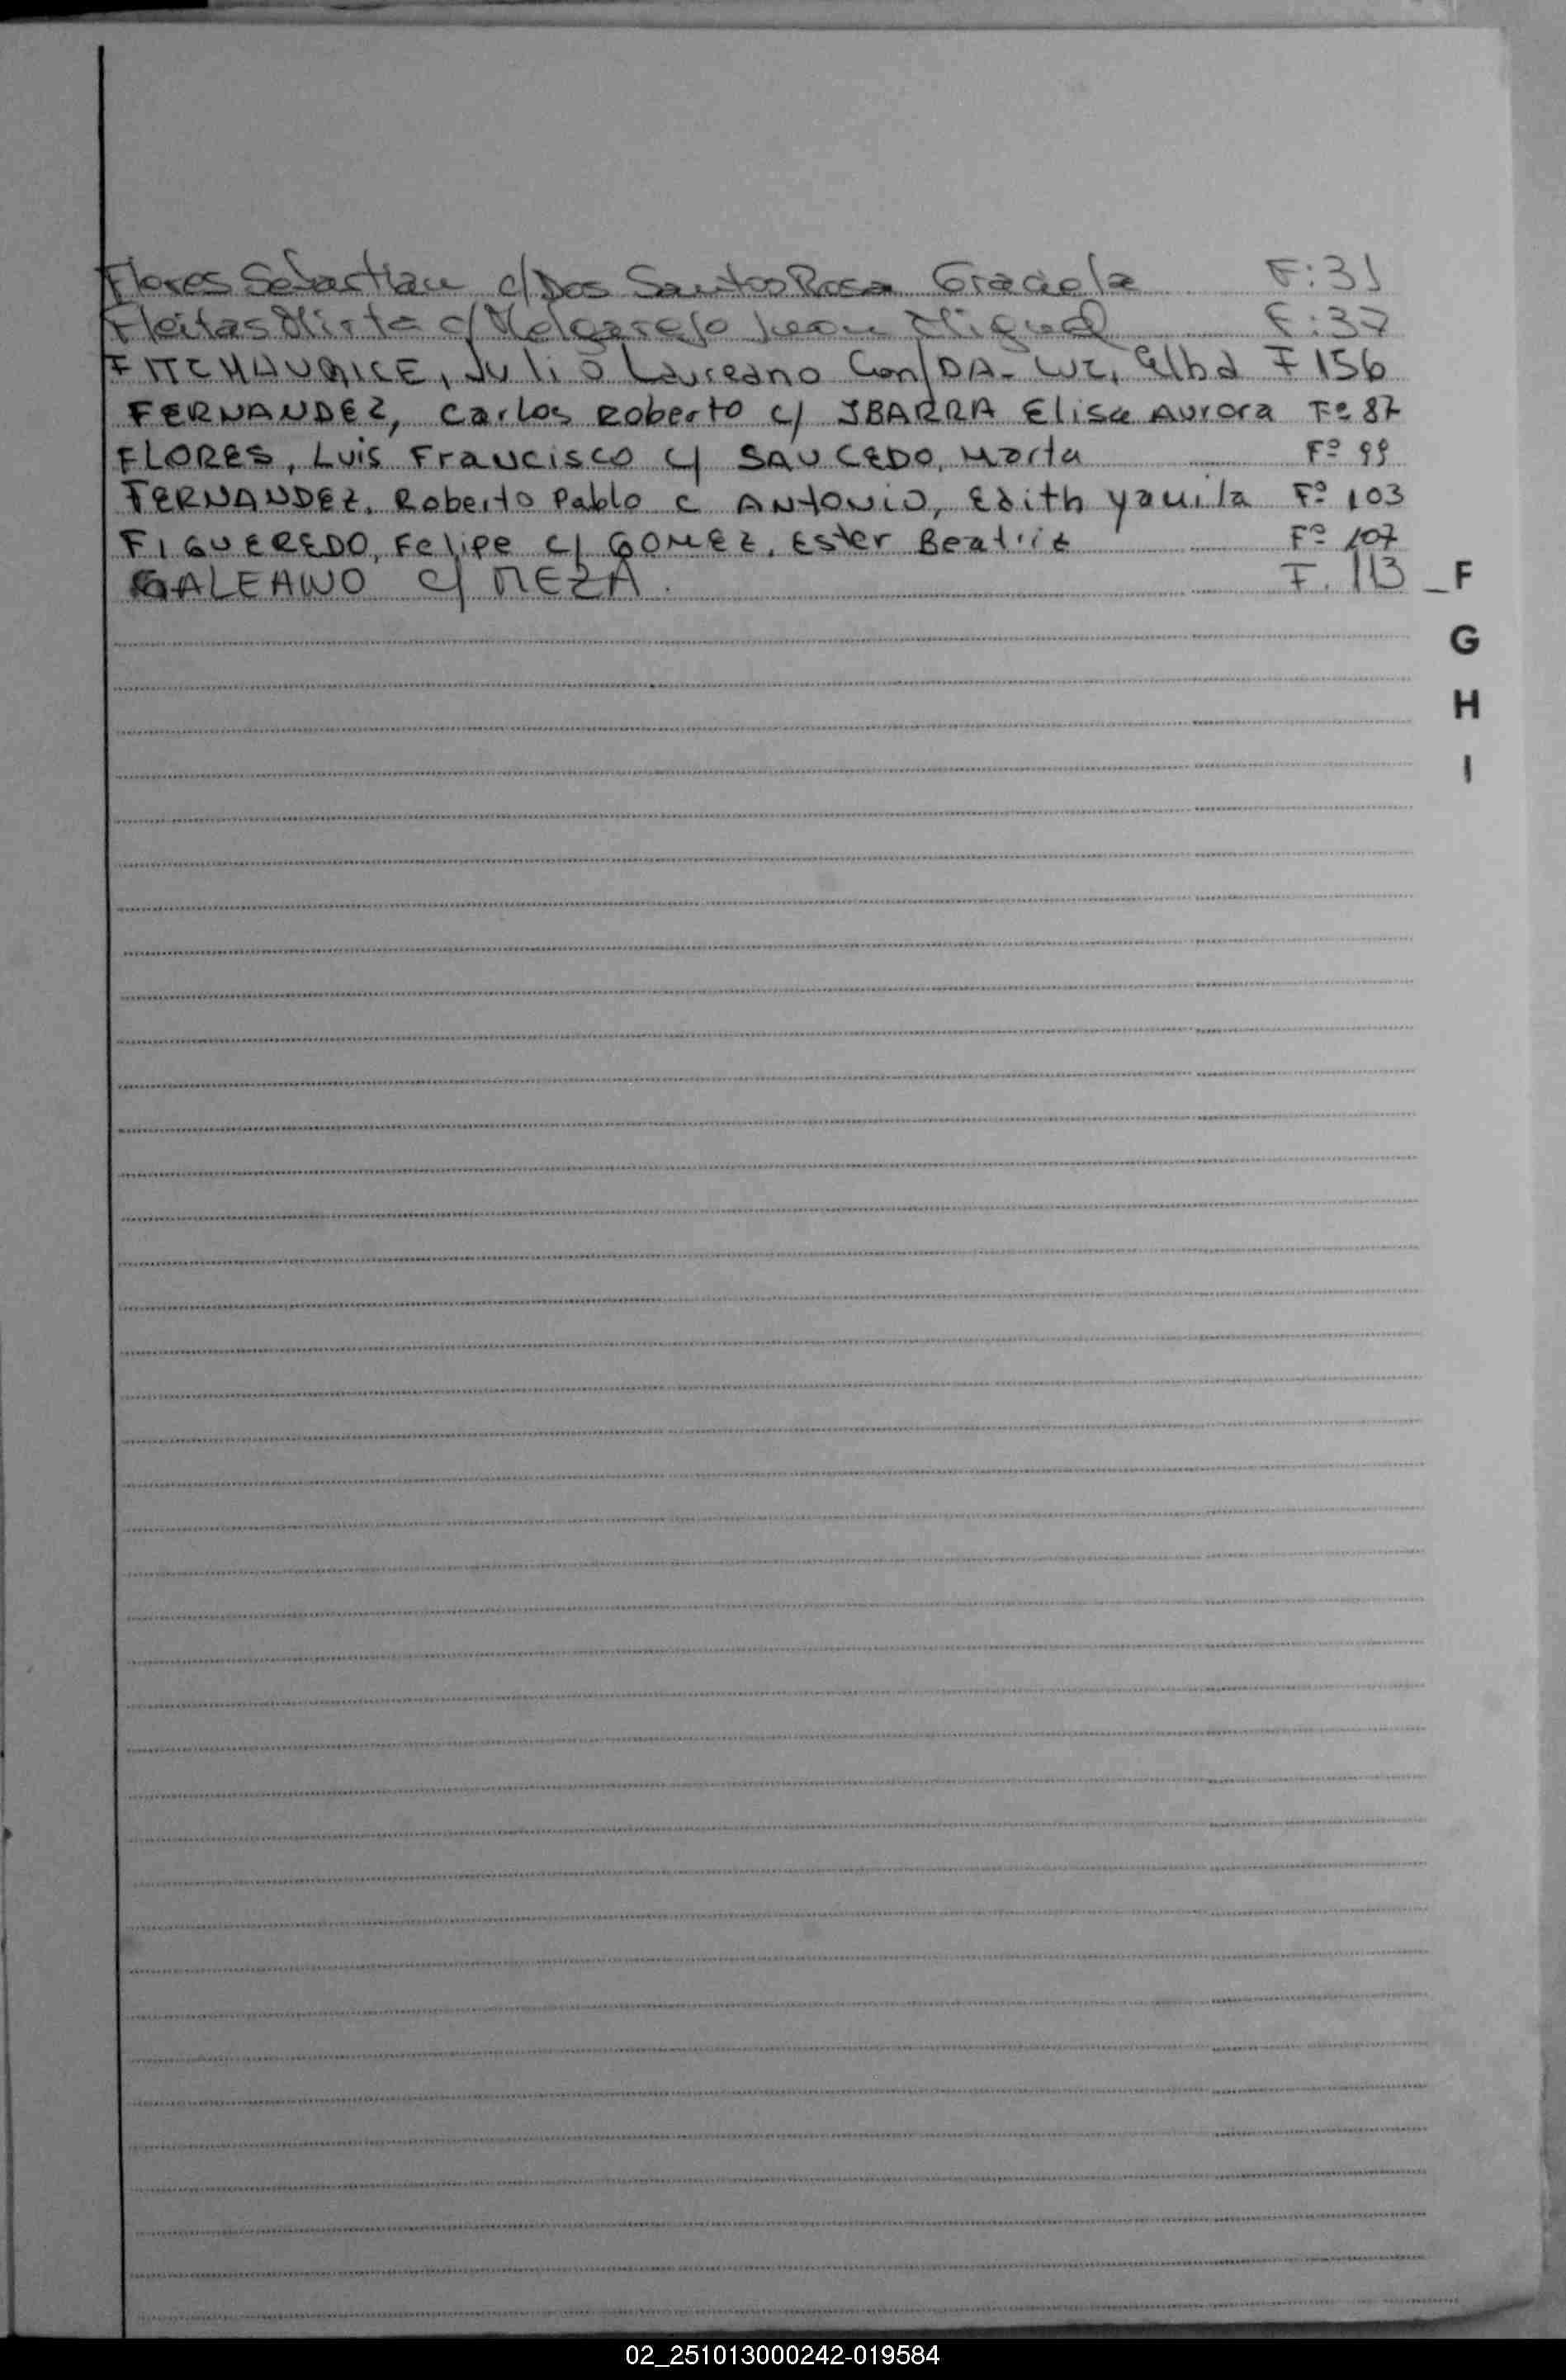 Flores Sebastian c/ Dos Santos Rosa Graciela F: 31
Fleitas Mirta c/ Melgarejo Juan Miguel F: 37
FITCMAURICE, Julio Laureano Con/ DA-LUZ, Elba F 156
FERNANDEZ, Carlos Roberto c/ IBARRA Elisa Aurora Fº 87
FLORES, Luis Francisco c/ SAUCEDO, Marta Fº 99
FERNANDEZ, Roberto Pablo c ANTONIO, Edith Yamila Fº 103
FIGUEREDO, Felipe c/ GOMEZ, Ester Beatriz Fº 107
GALEANO c/ MEZA. F. 113
F
G
H
I
02_251013000242-019584